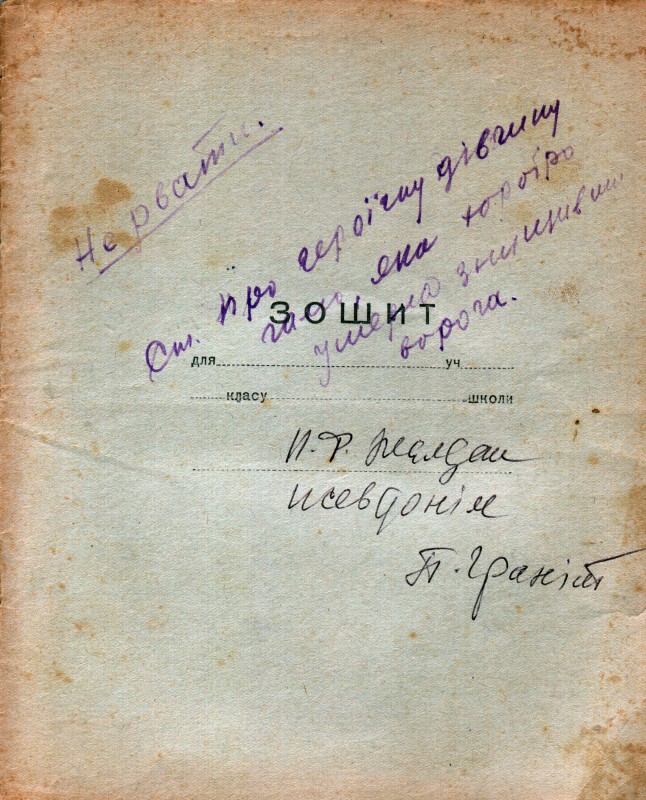 Не рвати.
Ст. про героїчну дівчину
яка хоробро
умерла знищивши
ворога.
ЗОШИТ
для уч
класу школи
П. Ф. Жалдак
псевдонім
П. Граніт